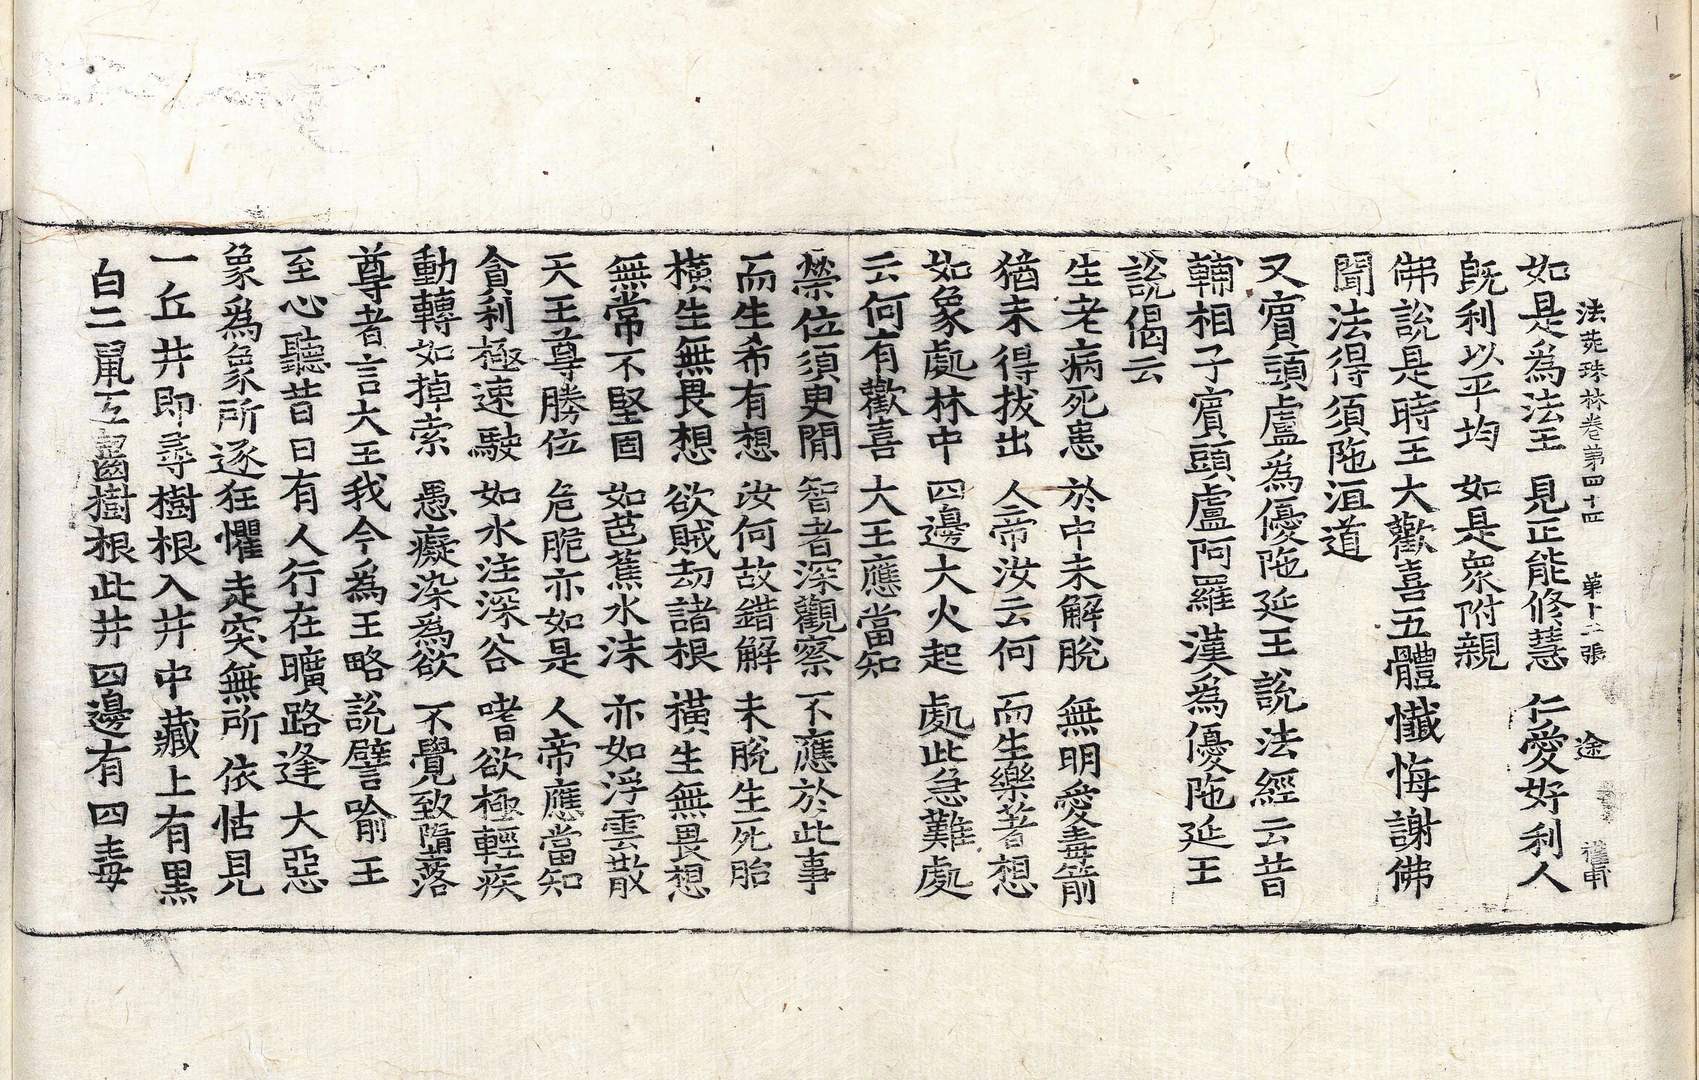 法苑珠林卷第四十四 第十二張 途
如是為法王 見正能修慧 仁愛好利人
既利以平均 如是衆附親
佛說是時王大歡喜五體懺悔謝佛
聞法得須陁洹道
又賓頭盧為優陁延王說法經云昔
輔相子賓頭盧阿羅漢為優陁延王
說偈云
生老病死恚 於中未解脫 無明愛毒箭
猶未得拔出 人帝汝云何 而生樂著想
如象處林中 四邊大火起 處此急難處
云何有歡喜 大王應當知
榮位須更閒 智者深觀察 不應於此事
而生希有想 汝何故錯解 未脫生死胎
橫生無畏想 欲賊劫諸根 橫生無畏想
無常不堅固 如芭蕉水沫 亦如浮雲散
天王尊勝位 危脆亦如是 人帝應當知
貪利極速駛 如水注深谷 嗜欲極輕疾
動轉如掉索 愚癡染為欲 不覺致墮落
尊者言大王我今為王略說譬喻王
至心聽昔日有人行在曠路逢大惡
象為象所逐狂懼走突無所依怙見
一丘井即尋樹根入井中藏上有黑
白二鼠互齧樹根此井四邊有四毒